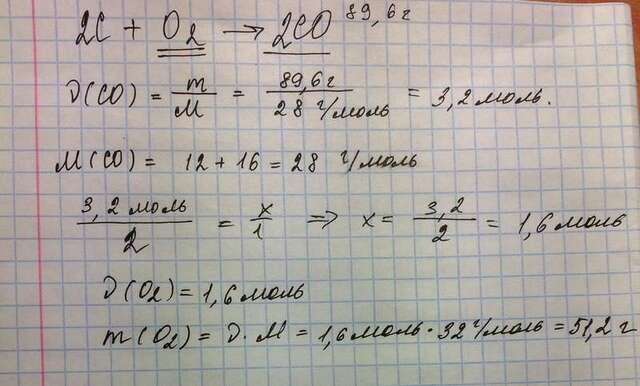 2C + O₂ → 2CO 89,6 г
ν(CO) = m/M = 89,6 г / 28 г/моль = 3,2 моль.
M(CO) = 12 + 16 = 28 г/моль
3,2 моль / 2 = x/1 ⇒ x = 3,2/2 = 1,6 моль
ν(O₂) = 1,6 моль
m(O₂) = ν · M = 1,6 моль · 32 г/моль = 51,2 г